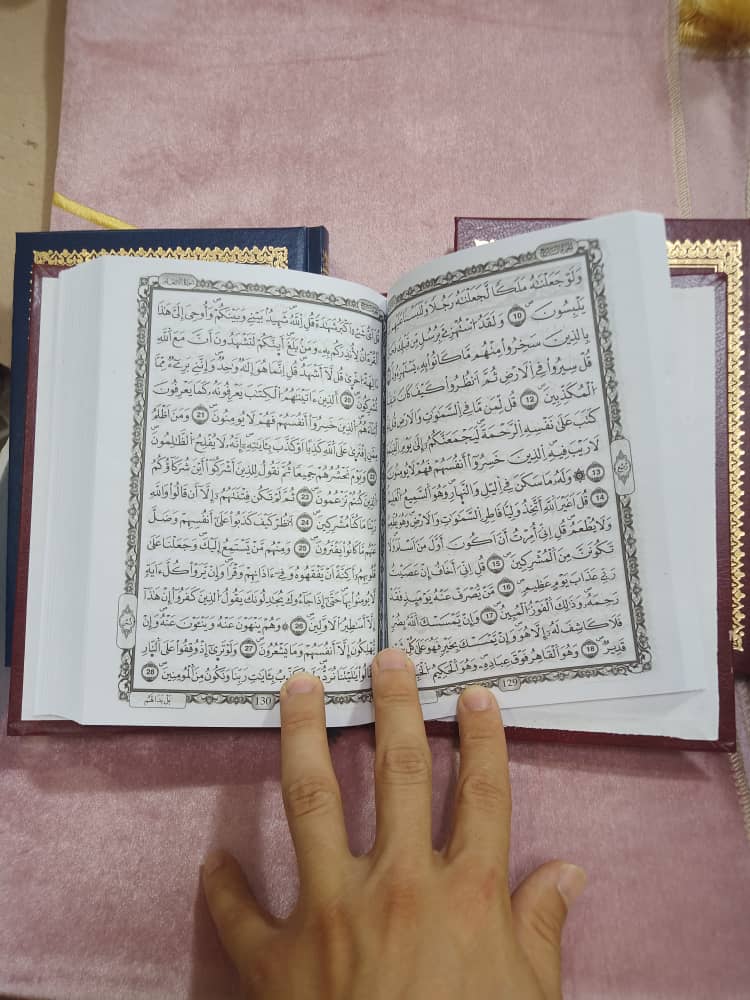 وَلَوْ جَعَلْنَٰهُ مَلَكًا لَّجَعَلْنَٰهُ رَجُلًا وَلَلَبَسْنَا عَلَيْهِم
يَلْبِسُونَ 10 وَلَقَدُ اُسْتُهْزِئَ بِرُسُلٍ مِّن قَبْلِكَ
بِالذِينَ سَخِرُوا۟ مِنْهُم مَّا كَانُوا۟ بِهِۦ يَسْتَهْزِءُونَ
قُلْ سِيرُوا۟ فِے اِلَارْضِ ثُمَّ اَنظُرُوا۟ كَيْفَ كَانَ
اَلْمُكَذِّبِينَ 12 قُل لِّمَن مَّا فِے اِلسَّمَٰوَٰتِ وَالَارْضِ قُل
كَتَبَ عَلَىٰ نَفْسِهِ اِلرَّحْمَةَ لَيَجْمَعَنَّكُمُۥٓ إِلَىٰ يَوْمِ
لَا رَيْبَ فِيهِ اِلذِينَ خَسِرُوٓا۟ أَنفُسَهُمْ فَهُمْ لَا يُومِنُونَ
13 وَلَهُۥ مَا سَكَنَ فِے اِليْلِ وَالنَّهَارِ وَهُوَ اَلسَّمِيعُ اُلْعَلِيمُ
14 قُلَ اَغَيْرَ اَللَّهِ أَتَّخِذُ وَلِيًّا فَاطِرِ اِلسَّمَٰوَٰتِ وَالَارْضِ وَهُوَ يُطْعِمُ
وَلَا يُطْعَمُ قُلِ اِنِّيَ أُمِرْتُ أَنَ اَكُونَ أَوَّلَ مَنَ اَسْلَمَ وَلَا
تَكُونَنَّ مِنَ اَلْمُشْرِكِينَ 15 قُلِ اِنِّيَ أَخَافُ إِنْ عَصَيْتُ
رَبِّے عَذَابَ يَوْمٍ عَظِيمٍ 16 مَّنْ يُّصْرَفْ عَنْهُ يَوْمَئِذٍ فَقَدْ
رَحِمَهُۥ وَذَٰلِكَ اَلْفَوْزُ اُلْمُبِينُ 17 وَإِنْ يَّمْسَسْكَ اَللَّهُ بِضُرٍّ
فَلَا كَاشِفَ لَهُۥٓ إِلَّا هُوَ وَإِنْ يَّمْسَسْكَ بِخَيْرٍ فَهُوَ عَلَىٰ كُلِّ شَےْءٍ
قَدِيرٌ 18 وَهُوَ اَلْقَاهِرُ فَوْقَ عِبَادِهِۦ وَهُوَ اَلْحَكِيمُ
129
قُلَ اَيُّ شَےْءٍ اَكْبَرُ شَهَٰدَةً قُلِ اِللَّهُ شَهِيدٌۢ بَيْنِے وَبَيْنَكُمْ وَأُوحِيَ إِلَيَّ هَٰذَا
اَلْقُرْءَانُ لِأُنذِرَكُم بِهِۦ وَمَنۢ بَلَغَ أَئِنَّكُمْ لَتَشْهَدُونَ أَنَّ مَعَ اَللَّهِ
ءَالِهَةً اُخْرَىٰ قُل لَّآ أَشْهَدُ قُلِ اِنَّمَا هُوَ إِلَٰهٌ وَٰحِدٌ وَإِنَّنِے بَرِےٓءٌ مِّمَّا
تُشْرِكُونَ 20 اَلذِينَ ءَاتَيْنَٰهُمُ اُلْكِتَٰبَ يَعْرِفُونَهُۥ كَمَا يَعْرِفُونَ
أَبْنَآءَهُمُ اُلذِينَ خَسِرُوٓا۟ أَنفُسَهُمْ فَهُمْ لَا يُومِنُونَ 21 وَمَنَ اَظْلَمُ
مِمَّنِ اِفْتَرَىٰ عَلَى اَللَّهِ كَذِبًا اَوْ كَذَّبَ بِـَٔايَٰتِهِۦٓ إِنَّهُۥ لَا يُفْلِحُ اُلظَّٰلِمُونَ
22 وَيَوْمَ نَحْشُرُهُمْ جَمِيعًا ثُمَّ نَقُولُ لِلذِينَ أَشْرَكُوٓا۟ أَيْنَ شُرَكَآؤُكُمُ
اُلذِينَ كُنتُمْ تَزْعُمُونَ 23 ثُمَّ لَمْ تَكُن فِتْنَتَهُمُۥٓ إِلَّآ أَن قَالُوا۟ وَاللَّهِ
رَبِّنَا مَا كُنَّا مُشْرِكِينَ 24 اَنظُرْ كَيْفَ كَذَبُوا۟ عَلَىٰٓ أَنفُسِهِمْ وَضَلَّ
عَنْهُم مَّا كَانُوا۟ يَفْتَرُونَ 25 وَمِنْهُم مَّنْ يَّسْتَمِعُ إِلَيْكَ وَجَعَلْنَا عَلَىٰ
قُلُوبِهِمُۥٓ أَكِنَّةً اَنْ يَّفْقَهُوهُ وَفِےٓ ءَاذَانِهِمْ وَقْرًا وَإِنْ يَّرَوْا۟ كُلَّ ءَايَةٍ
لَّا يُومِنُوا۟ بِهَا حَتَّىٰٓ إِذَا جَآءُوكَ يُجَٰدِلُونَكَ يَقُولُ اُلذِينَ كَفَرُوٓا۟ إِنْ هَٰذَآ
إِلَّآ أَسَٰطِيرُ اُلَاوَّلِينَ 26 وَهُمْ يَنْهَوْنَ عَنْهُ وَيَنْـَٔوْنَ عَنْهُ وَإِنْ
يُّهْلِكُونَ إِلَّآ أَنفُسَهُمْ وَمَا يَشْعُرُونَ 27 وَلَوْ تَرَىٰٓ إِذْ وُقِفُوا۟ عَلَى اَلنَّارِ
فَقَالُوا۟ يَٰلَيْتَنَا نُرَدُّ وَلَا نُكَذِّبُ بِـَٔايَٰتِ رَبِّنَا وَنَكُونُ مِنَ اَلْمُومِنِينَ 28
بَلْ بَدَا لَهُم
130